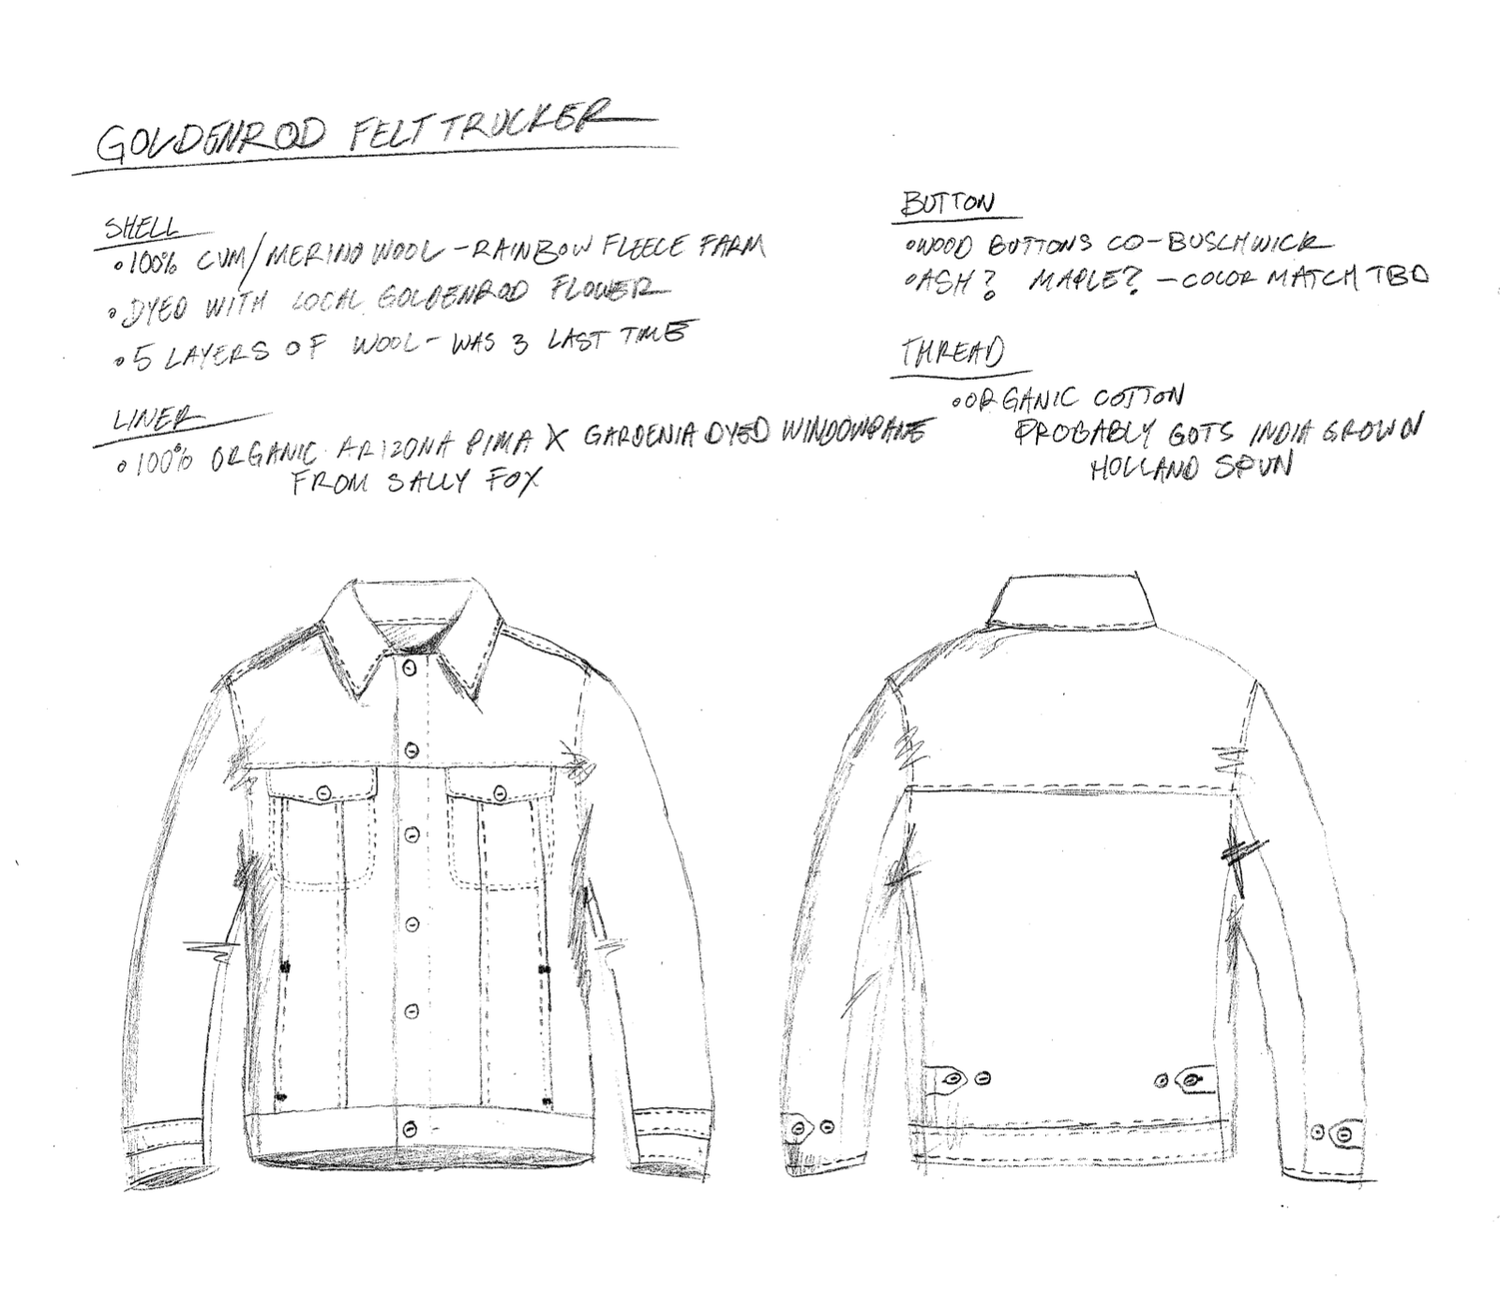 GOLDENROD FELT TRUCKER
SHELL
• 100% CVM/MERINO WOOL - RAINBOW FLEECE FARM
• DYED WITH LOCAL GOLDENROD FLOWER
• 5 LAYERS OF WOOL - WAS 3 LAST TIME
LINER
• 100% ORGANIC ARIZONA PIMA X GARDENIA DYED WINDOWPANE
FROM SALLY FOX
BUTTON
• WOOD BUTTONS CO - BUSCHWICK
• ASH? MAPLE? - COLOR MATCH TBD
THREAD
• ORGANIC COTTON
PROBABLY GOTS INDIA GROWN
HOLLAND SPUN